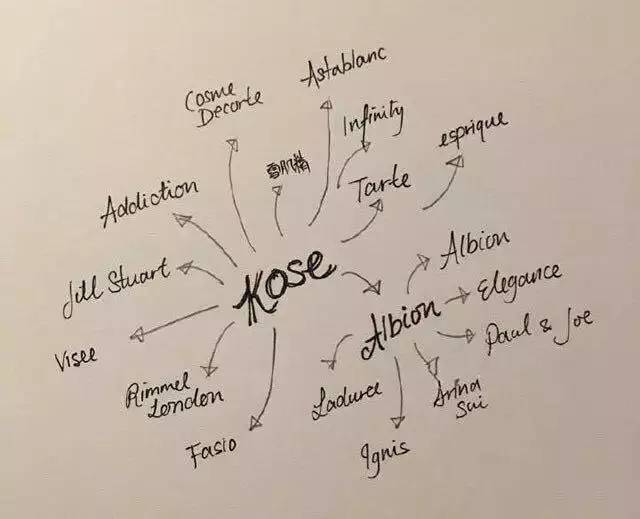 Astablanc
Cosme
Decorte
Infinity
esprique
雪肌精
Tarte
Addiction
Albion
Kose
Jill Stuart
Elegance
Albion
Paul & Joe
Visee
Rimmel
London
Laduree
Anna
Sui
Fasio
Ignis